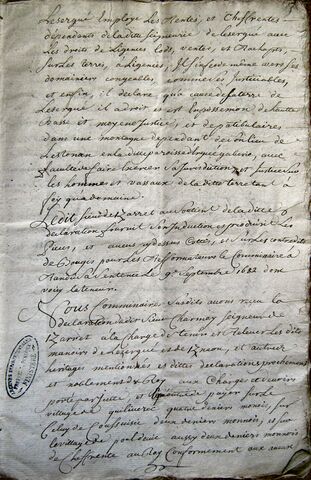 Leserqué Employe les Rentes, et Cheffrentes
dependents de laditte seigneurie de leserqué avec
Les droits de Ligences Lods, ventes, et Rachapts,
sur les terres, a Ligences, Il Insere de même avec ses
domaines congeables, hommes et Justiciables,
et enfin, il declare qu'a cause de sa terre de
Leserqué il a droit et est En possession de haute
Basse et moyenne Justice, et de patibulaires
dans une montagne dependant du
Lestonan en laditte paroisse d'ergué gaberic, avec
faculté de faire Exercer sa Jurisdiction et Justice sur
les hommes et vassaux de la ditte terre tant a
foy que domaine.
Ledit sieur de Karret au soutient de laditte
declaration fournit son Induction et produit les
pieces, et aveus cy dessus Cottés, et sur les contredits
de pour les Reformateurs le Commissaire a
Rendu sa Sentence le 9e Septembre 1682 dont
voicy la teneur.
Nous Commissaire susdits avons reçu la
declaration dudit sieur Charmoy seigneur de
Karret a la charge de tenir et relever les dits
manoirs de Lezergué et de Knaou, et autres
heritages mentionnés es dittes declarations prochement
et noblement du Roy aux Charges et devoirs
porté par icelle, et de payer sur le
village de quillihuec quatre deniers monnois, sur
Celuy de deux deniers monnois, et sur
le village de poul deux aussy deux deniers monnois
de Cheffrente au Roy Conformement aux aveux